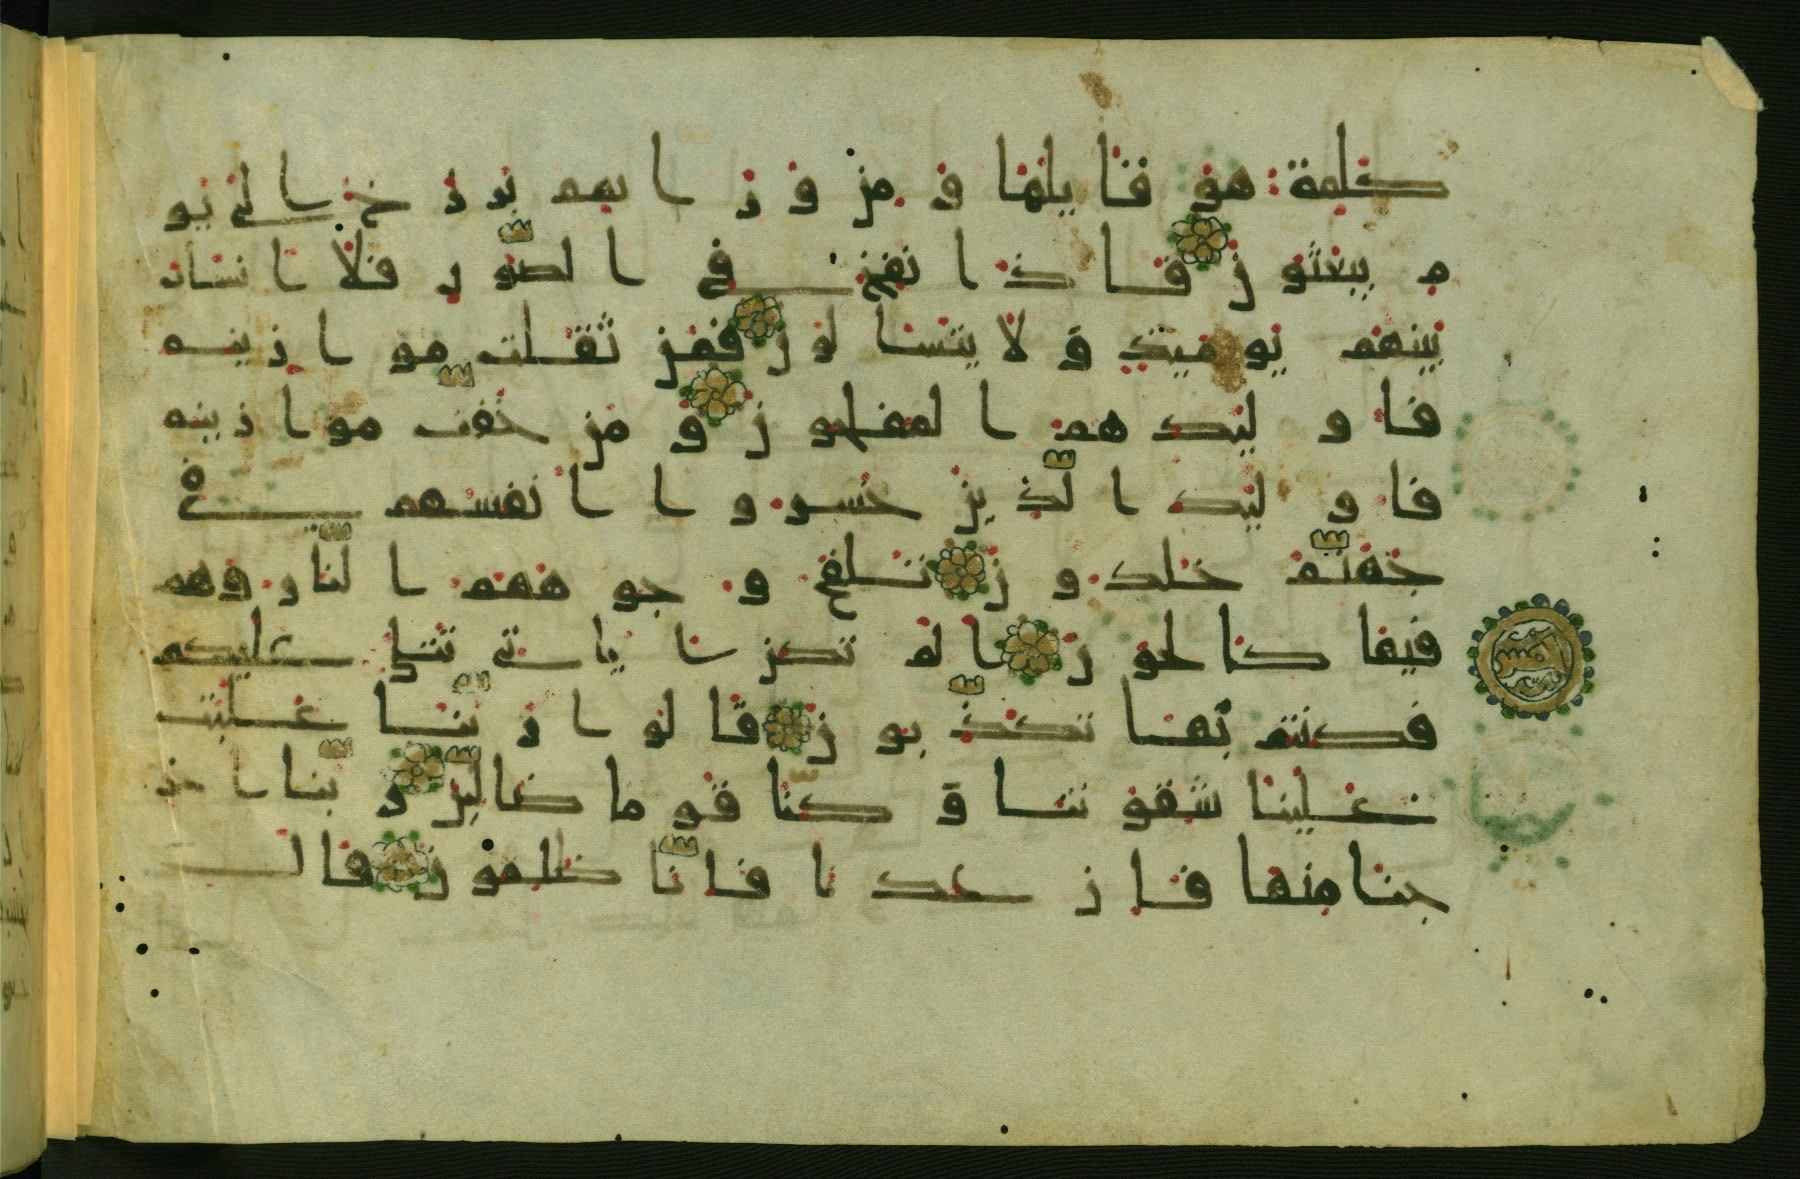 كلمة هو قايلها و من و ر ا ىهم بر ز خ ا لى يو
م يبعثو ن فا ذ ا نفخ في ا لصّو ر فلا ا نسا ب
بينهم يو ميذ و لا يتسا لو ن فمن ثقلت مو ا ز ينه
فا و ليك هم ا لمفلحو ن و من خفت مو ا ز ينه
فا و ليك ا لّذ ين خسر و ا ا نفسهم في
جهنّم خلد و ن تلفح و جو ههم ا لنّا ر وهم
فيها كا لحو ن ا لم تكن ا يا تي تتلى عليكم
فكنتم بها تكذّ بو ن قا لو ا ر بّنا غلبت
علينا شقو تنا و كنا قو ما ضا لّين ر بّنا ا خر
جنا منها فا ن عد نا فا نّا ظلمو ن قا ل
خمس